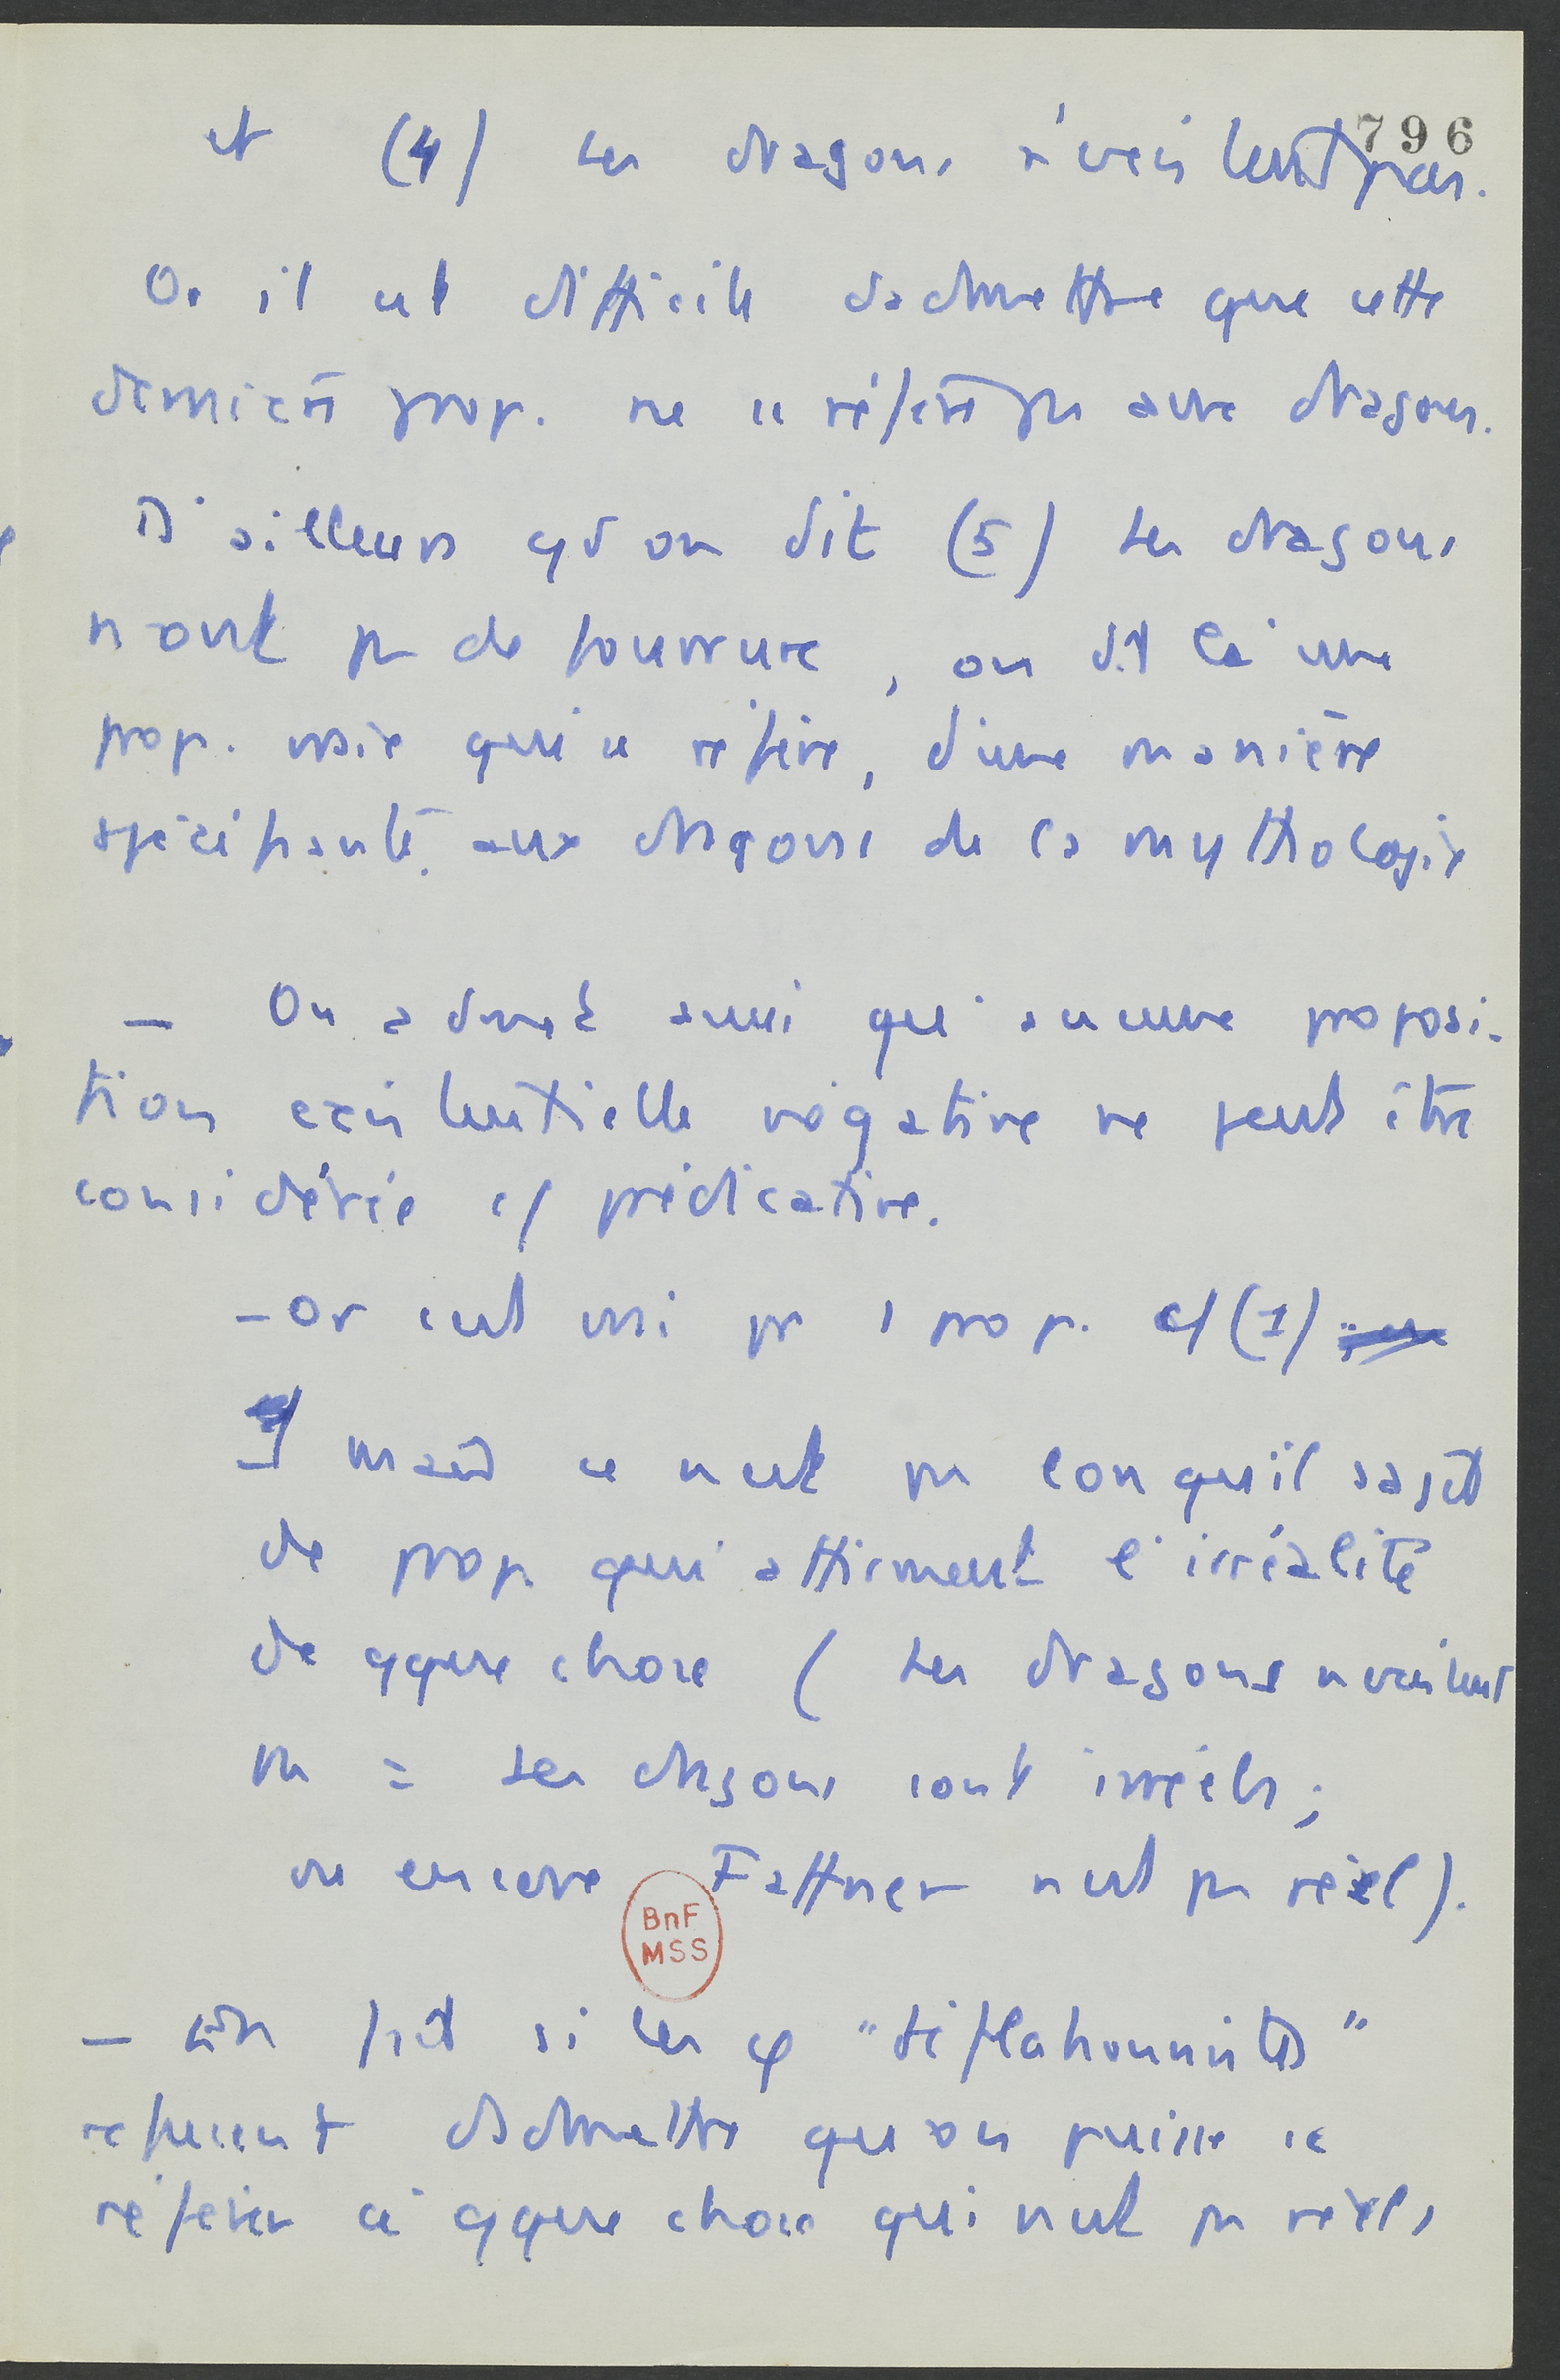 796
et (4) les dragons n'existent pas.
Or il est difficile d'admettre que cette
dernière prop. ne se réfère pas aux dragons.
D'ailleurs qd on dit (5) les dragons
n'ont pas de fourrure, on dit là une
prop. vraie qui se réfère, d'une manière
spécifiante, aux dragons de la mythologie
— On admet aussi qu'aucune proposi-
tion existentielle négative ne peut être
considérée c/ prédicative.
- Or c'est vrai pr 1 prop. c/ (1)
mais ce n'est pas lorsqu'il s'agit
de prop. qui affirment l'irréalité
de qque chose (les dragons n'existent
pas = les dragons sont irréels;
ou encore Faffner n'est pas réel).
BnF
MSS
— En fait si les φ
refusent d'admettre qu'on puisse se
référer à qque chose qui n'est pas réel,